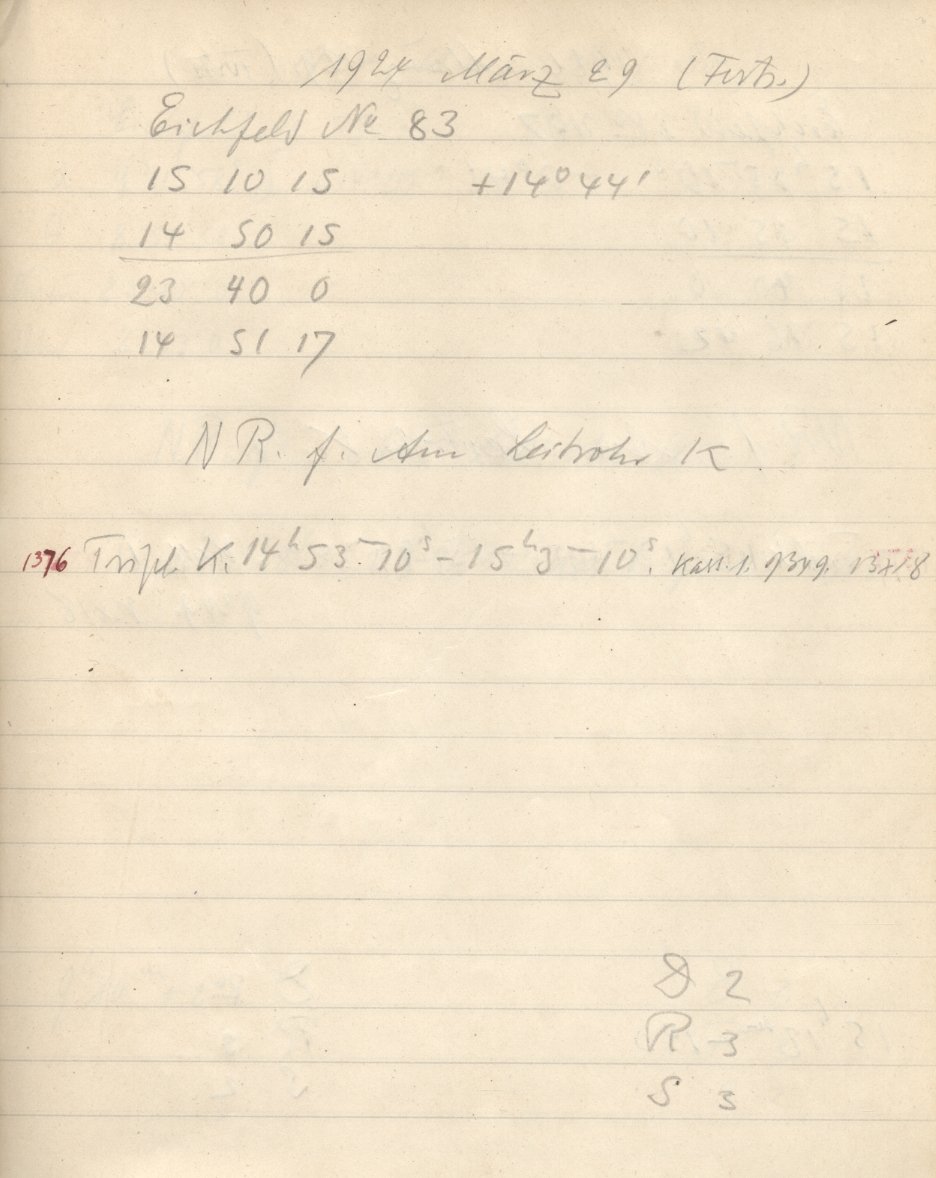 1924 März 29 (Forts.)
Eichfeld No 83
15 10 15 +14° 44'
14 50 15
23 40 0
14 51 17
N R. f. Am Leitrohr K
1376 Tripl. K. 14h 53m 10s – 15h 3m 10s. Kass. 1.
D 2
R 3
S 3